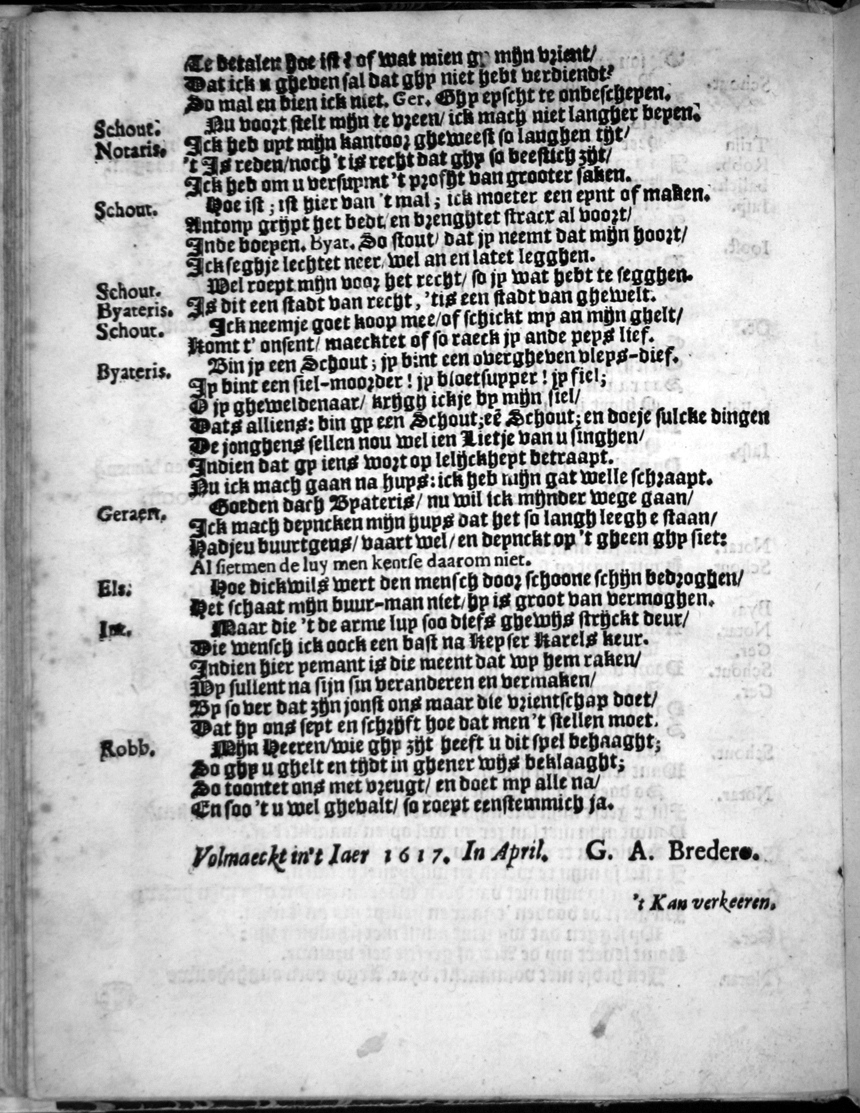 Te betalen hoe ist? of wat mien gy mijn vrient/
Dat ick u gheven sal dat ghy niet hebt verdiendt?
So mal en bien ick niet. Ger. Ghy eyscht te onbescheyen.
Schout. Nu voort stelt mijn te vreen/ ick mach niet langher beyen.
Notaris. Ick heb upt mijn kantoor gheweest so langhen tijt/
't Is reden/noch 't is recht dat ghy so beestich zijt/
Ick heb om u versuymt 't profijt van grooter saken.
Schout. Hoe ist; ist hier van 't mal; ick moeter een eynt of maken.
Antony grijpt het bedt/ en brenghtet stracx al voort/
Inde boeyen. Byat. So stout/ dat jy neemt dat mijn hoort/
Ick seghje lechtet neer/ wel an en latet legghen.
Schout. Wel roept mijn voor het recht/ so jy wat hebt te segghen.
Byateris. Is dit een stadt van recht, 'tis een stadt van ghewelt.
Schout. Ick neemje goet koop mee/of schickt my an mijn ghelt/
Komt t' onsent/ maecktet of so raeck jy ande peys lief.
Byateris. Bin jy een Schout; jy bint een overgheven vleys-dief.
Jy bint een siel-moorder! jy bloetsupper! jy fiel;
O jy gheweldenaar/ krijgh ickje by mijn siel/
Dats alliens: bin gy een Schout;eē Schout; en doeje sulcke dingen
De jonghens sellen nou wel ien Lietje van u singhen/
Indien dat gy iens wort op lelijckheyt betraapt.
Nu ick mach gaan na huys: ick heb mijn gat welle schraapt.
Geraert. Goeden dach Byateris/ nu wil ick mijnder wege gaan/
Ick mach depncken mijn huys dat het so langh leegh e staan/
Hadjeu buurtgens/ vaart wel/ en depnckt op 't gheen ghy siet:
Al sietmen de luy men kentse daarom niet.
Els. Hoe dickwils wert den mensch door schoone schijn bedroghen/
Het schaat mijn buur-man niet/ hy is groot van vermoghen.
Int. Maar die 't de arme luy soo diefs ghewijs strijckt deur/
Die wensch ick oock een bast na Keyser Karels keur.
Indien hier yemant is die meent dat wy hem raken/
Wy sullent na sijn sin veranderen en vermaken/
By so ver dat zijn jonst ons maar die vrientschap doet/
Dat hy ons seyt en schrijft hoe dat men 't stellen moet.
Robb. Mijn Heeren/wie ghy zijt heeft u dit spel behaaght;
So ghy u ghelt en tijdt in ghener wijs beklaaght;
So toontet ons met vreugt/ en doet my alle na/
En soo 't u wel ghevalt/ so roept eenstemmich ja.
Volmaeckt in't Iaer 1617. In April. G. A. Bredero.
't Kan verkeeren.